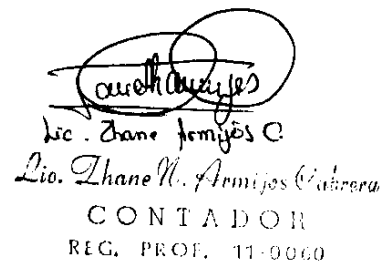 Lic. Zhane Armijos C.
Lic. Zhane N. Armijos Cabrera
CONTADOR
REG. PROF. 11-0060